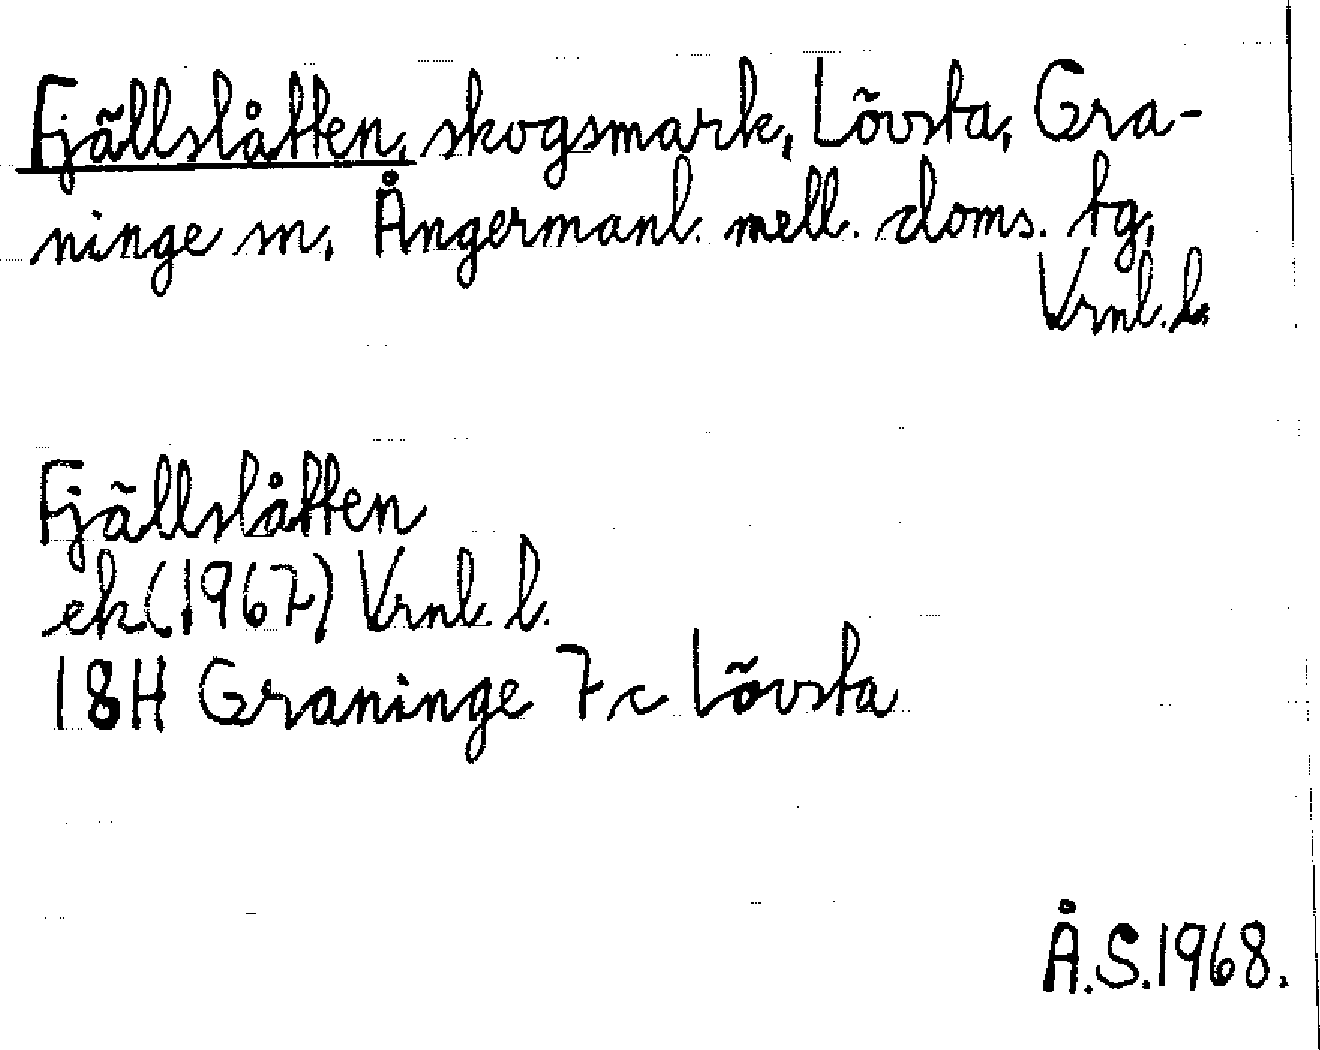 Fjällslåtten, skogsmark, Lövsta, Gra-
ninge sn. Ångermanl. mell. doms. tg,
Vrnl. l.
Fjällslåtten
ek (1967) Vrnl. l.
18H Graninge 7c Lövsta
Å.S.1968.